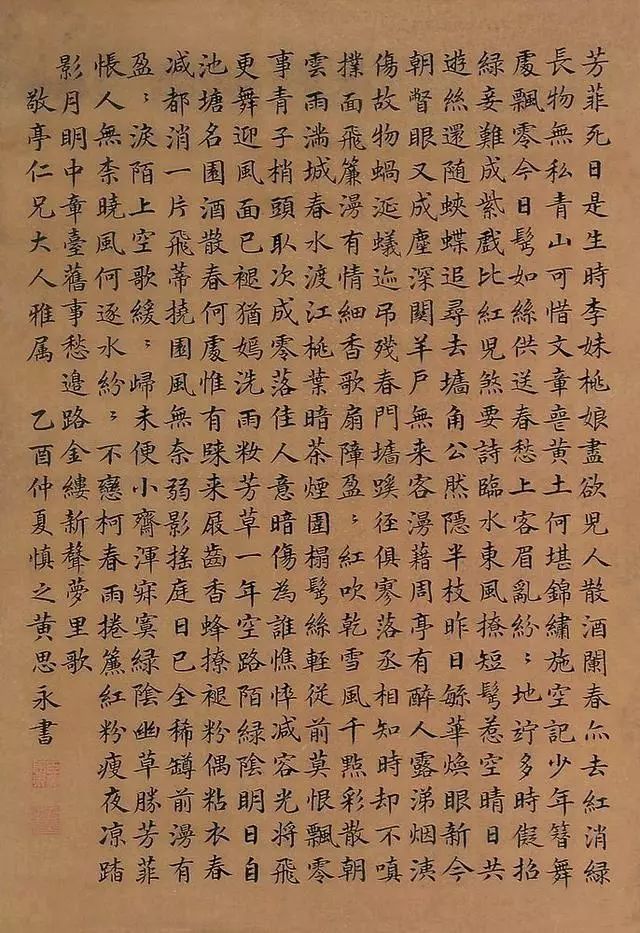 芳菲死日是生時李妹桃娘盡欲兒人散酒闌春亦去紅消綠
長物無私青山可惜文章喪黃土何堪錦繡施空記少年簪舞
處飄零今日髩如絲供送春愁上客眉亂紛〻地竚多時假招
綠妾難成紫戲比紅兒煞要詩臨水東風撩短髩惹空晴日共
遊絲還随蛺蝶追尋去墻角公然隱半枝昨日緐華煥眼新今
朝瞥眼又成塵深関羊戶無来客漫藉周亭有醉人露涕烟洟
傷故物蝸涎蟻迹吊殘春門墻蹊徑俱寥落丞相知時却不嗔
撲面飛簾漫有情細香歌扇障盈〻紅吹乾雪風千點彩散朝
雲雨満城春水渡江桃葉暗茶煙圍榻髩絲輕従前莫恨飄零
事青子梢頭取次成零落佳人意暗傷為誰憔悴減容光將飛
更舞迎風面已褪猶嫣洗雨粧芳草一年空路陌綠陰明日自
池塘名園酒散春何處惟有踈来屐齒香蜂撩褪粉偶粘衣春
減都消一片飛蒂撓園風無奈弱影搖庭日已全稀罇前漫有
盈〻淚陌上空歌緩〻歸未便小齊渾寂寞綠陰幽草勝芳菲
悵人無柰曉風何逐水紛〻不戀柯春雨捲簾紅粉瘦夜凉踏
影月明中章臺舊事愁邊路金縷新聲夢里歌
敬亭仁兄大人雅属 乙酉仲夏慎之黃思永書